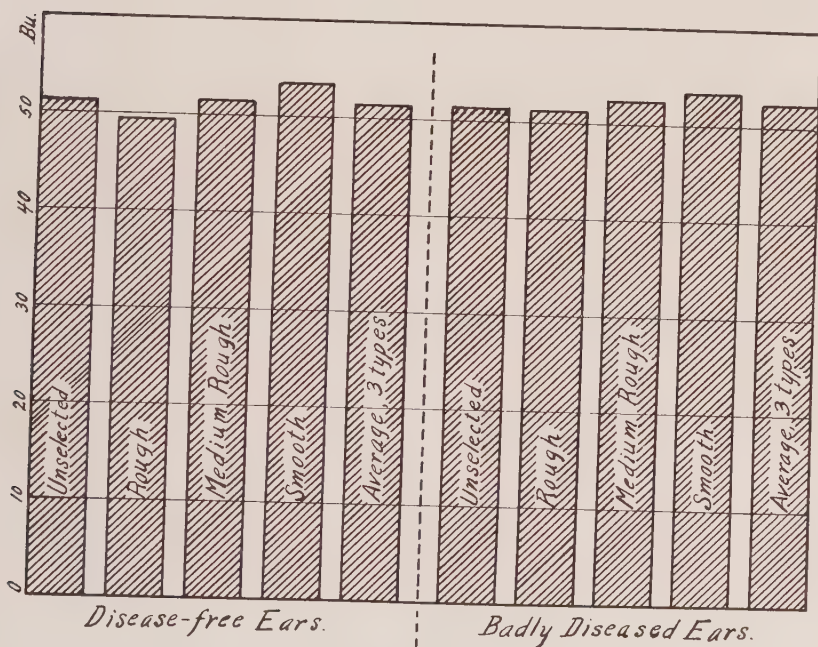 Bu.
50
40
30
20
10
0
Unselected
Rough
Medium Rough
Smooth
Average, 3 types
Unselected
Rough
Medium Rough
Smooth
Average, 3 types
Disease-free Ears.
Badly Diseased Ears.